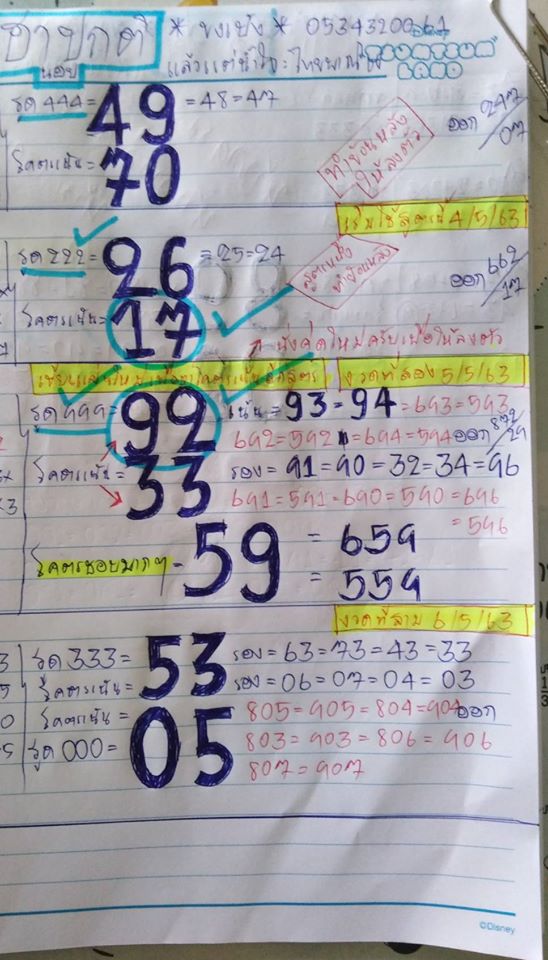 ฮานอย ปกติ * ขงเบ้ง * 0534320061
รูด 444 = 49 = 48 = 47
ออก 247/07
โคตรเน้น = 70
ทำย้อนหลัง
ให้ลงตัว
เริ่มใช้สูตรนี้ 4/5/63
รูด 222 = 26 = 25 = 24
ออก 662/17
โคตรเน้น = 17
สูตรนั่ง
ทำย้อนหลัง
นั่งคิดใหม่ครับเพื่อให้ลงตัว
งวดที่สอง 5/5/63
รูด 999 = 92 เน้น = 93 = 94 = 693 = 593
692 = 592 = 694 = 594 ออก 892/29
โคตรเน้น = 33 รอง = 91 = 90 = 32 = 34 = 96
691 = 591 = 690 = 590 = 696
= 596
โคตรชอบมากๆ = 59 = 659
= 559
งวดที่สาม 6/5/63
รูด 333 = 53 รอง = 63 = 73 = 43 = 33
โคตรเน้น = รอง = 06 = 07 = 04 = 03
โคตรเน้น = 05 805 = 905 = 804 = 904 ออก
รูด 000 = 803 = 903 = 806 = 906
807 = 907
©Disney